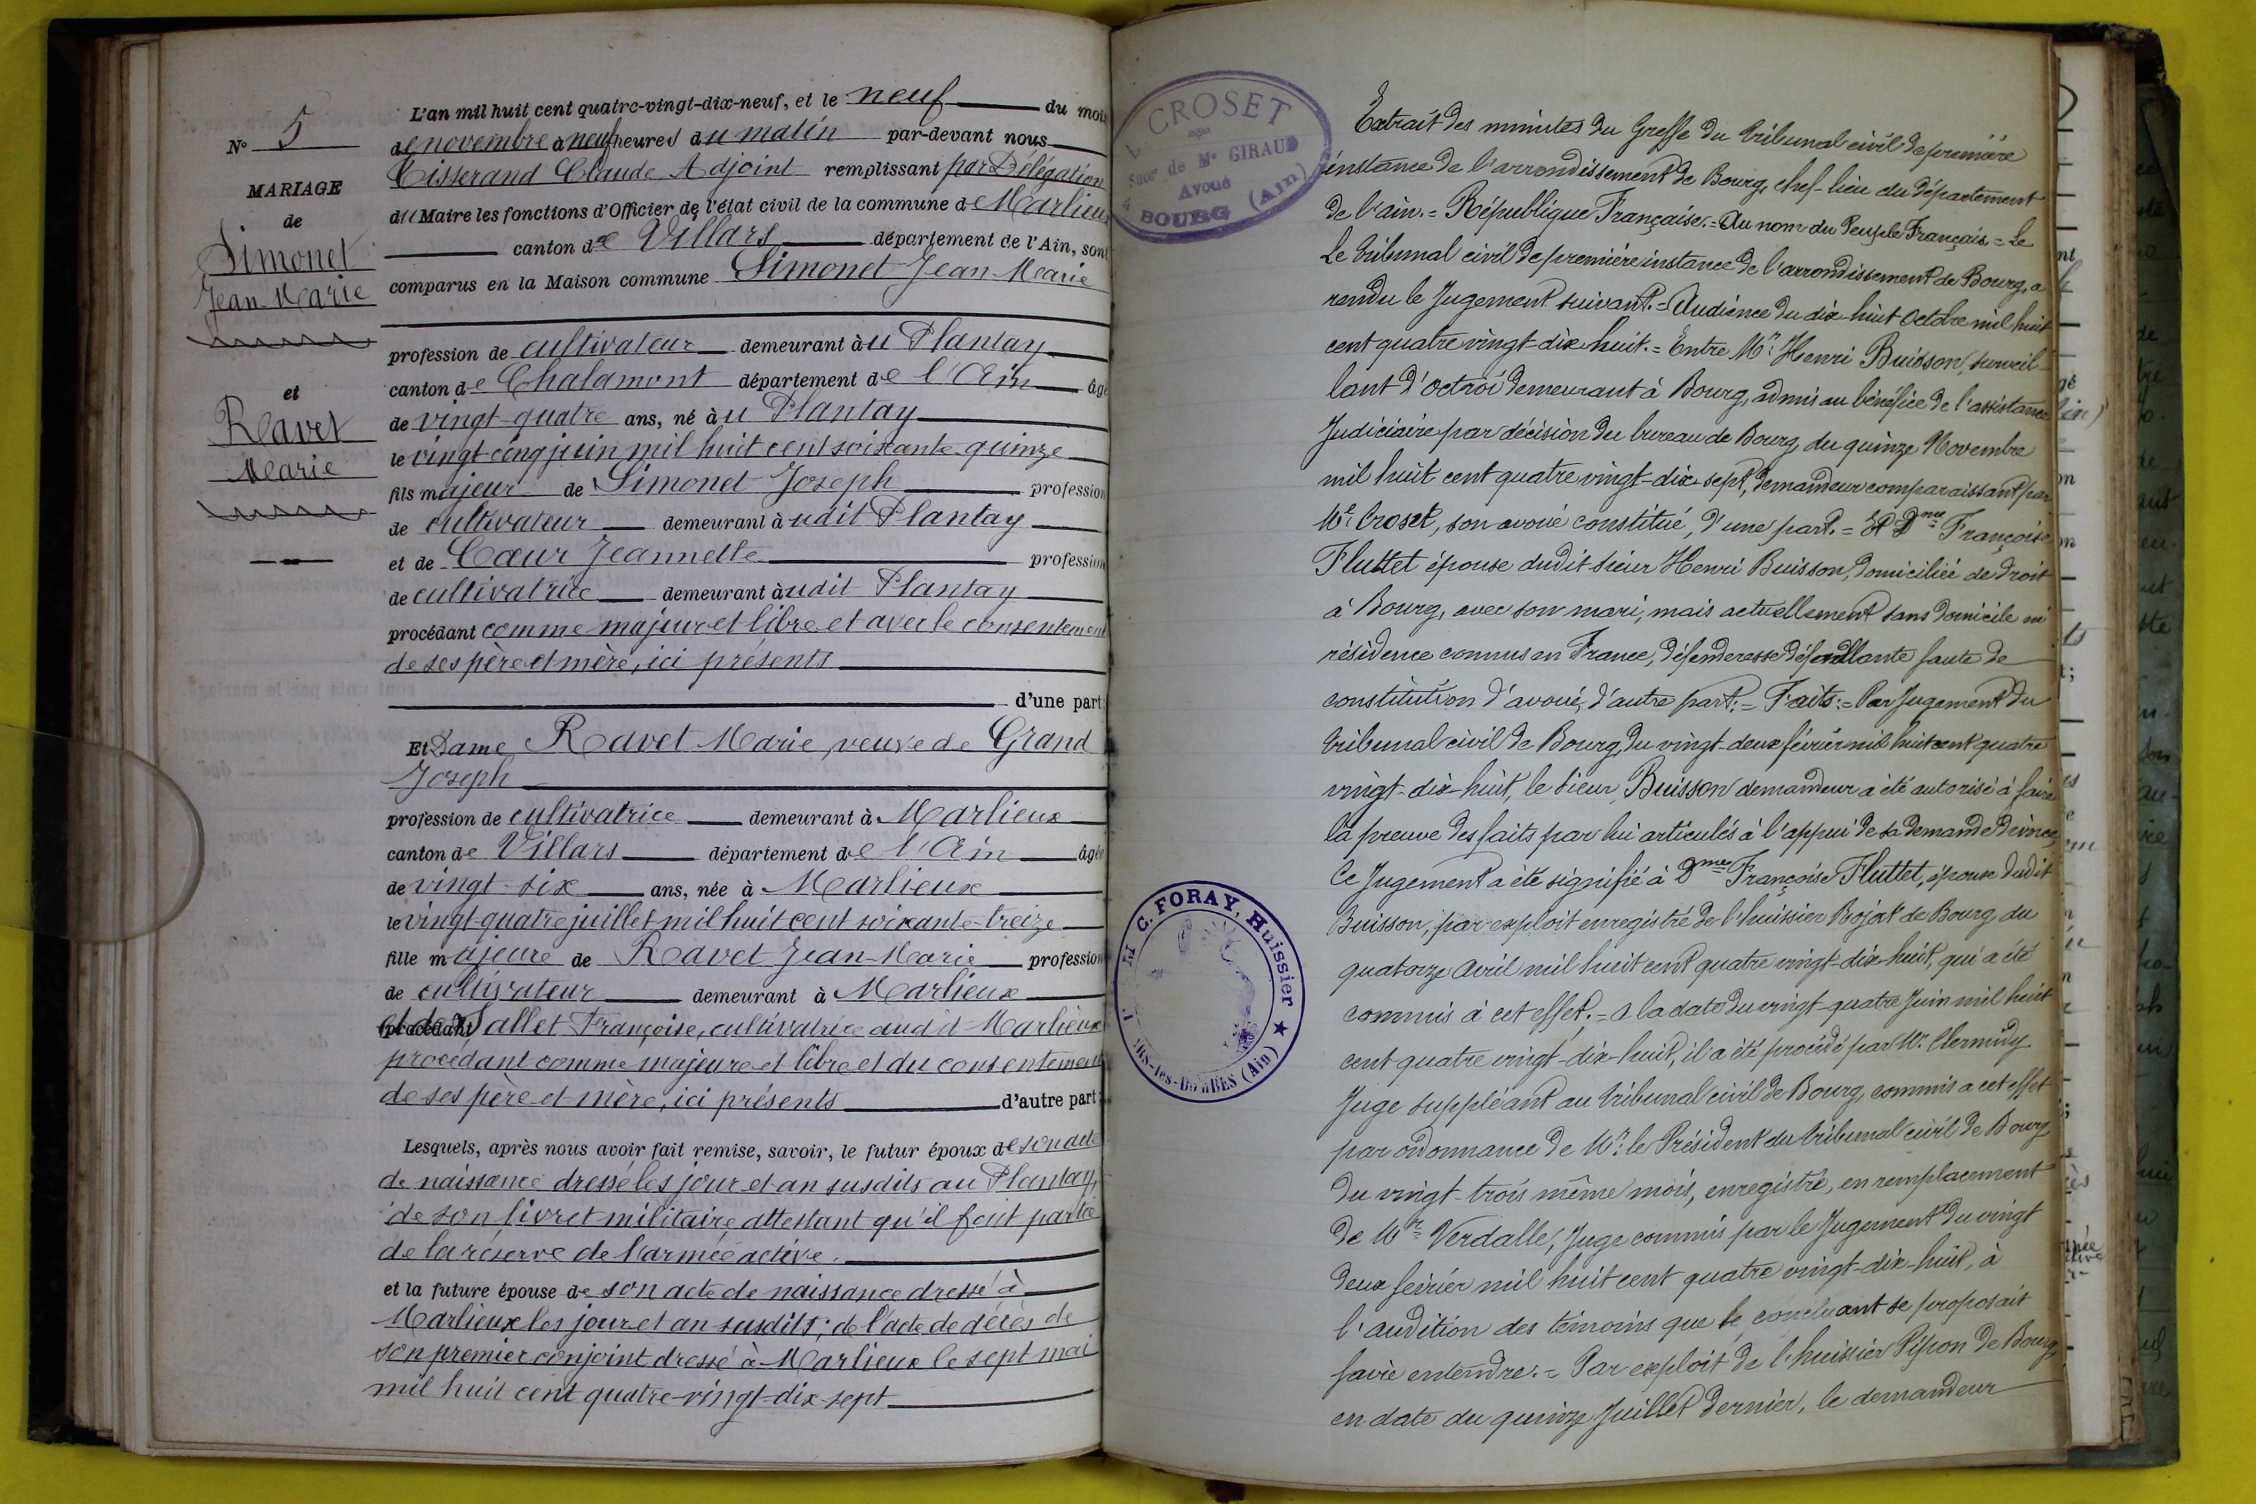 L'an mil huit cent quatre-vingt-dix-neuf, et le neuf du mois
N° 5
de novembre à neuf heures du matin par-devant nous
Tisserand Claude Adjoint remplissant par Délégation
MARIAGE
du Maire les fonctions d'Officier de l'état civil de la commune de Marlieux
de
canton de Villars département de l'Ain, sont
Simonet
comparus en la Maison commune Simonet Jean Marie
Jean Marie
profession de cultivateur demeurant au Plantay
canton de Chalamont département de l'Ain âgé
et
de vingt quatre ans, né au Plantay
Ravet
le vingt cinq juin mil huit cent soixante quinze
Marie
fils majeur de Simonet Joseph profession
de cultivateur demeurant audit Plantay
et de Cœur Jeannette profession
de cultivatrice demeurant audit Plantay
procédant comme majeur et libre et avec le consentement
de ses père et mère, ici présents
d'une part;
Et Dame Ravet Marie, veuve de Grand
Joseph
profession de cultivatrice demeurant à Marlieux
canton de Villars département de l'Ain âgée
de vingt-six ans, née à Marlieux
le vingt-quatre juillet mil huit cent soixante-treize
fille majeure de Ravet Jean-Marie profession
de cultivateur demeurant à Marlieux
et de Sallet Françoise, cultivatrice audit Marlieux
procédant comme majeure et libre et du consentement
de ses père et mère, ici présents d'autre part;
Lesquels, après nous avoir fait remise, savoir, le futur époux de son acte
de naissance dressé les jour et an susdits au Plantay,
de son livret militaire, attestant qu'il fait partie
de la réserve de l'armée active.
et la future épouse de son acte de naissance dressé à
Marlieux les jour et an susdits; de l'acte de décès de
son premier conjoint dressé à Marlieux le sept mai
mil huit cent quatre-vingt-dix-sept
CROSET
Succr de Me GIRAUD
Avoué
BOURG (Ain)
C. FORAY, Huissier ★
(Ain)
Extrait des minutes du Greffe du tribunal civil de première
instance de l'arrondissement de Bourg, chef-lieu du département
de l'ain. = République Française. = Au nom du Peuple Français = Le
Le tribunal civil de première instance de l'arrondissement de Bourg, a
rendu le Jugement suivant. = Audience du dix-huit Octobre mil huit
cent quatre vingt-dix huit. = Entre Mr. Henri Buisson, surveil-
lant d'octroi demeurant à Bourg, admis au bénéfice de l'assistance
Judiciaire par décision du bureau de Bourg, du quinze Novembre
mil huit cent quatre vingt-dix sept, demandeur comparaissant par
Me. Croset, son avoué constitué, d'une part. = Et Dme Françoise
Fluttet épouse dudit sieur Henri Buisson, domiciliée de droit
à Bourg, avec son mari, mais actuellement sans domicile ni
résidence connus en France, défenderesse défaillante faute de
constitution d'avoué, d'autre part. = Faits: = Par Jugement du
tribunal civil de Bourg, du vingt-deux février mil huit cent quatre
vingt-dix-huit, le sieur Buisson demandeur a été autorisé à faire
la preuve des faits par lui articulés à l'appui de sa demande divorce,
Ce Jugement a été signifié à Dme Françoise Fluttet, épouse dudit
Buisson, par exploit enregistré de l'huissier Bojat de Bourg, du
quatorze Avril mil huit cent quatre vingt-dix-huit, qui a été
commis à cet effet. = A la date du vingt-quatre Juin mil huit
cent quatre vingt-dix-huit, il a été procédé par Mr. Clermidy
Juge suppléant au tribunal civil de Bourg, commis a cet effet
par ordonnance de Mr. le Président du tribunal civil de Bourg
du vingt-trois même mois, enregistré, en remplacement
de Mr. Verdalle, Juge commis par le Jugement du vingt
deux février mil huit cent quatre vingt-dix-huit, à
l'audition des témoins que le concluant se proposait
faire entendre. = Par exploit de l'huissier Pipon de Bourg,
en date du quinze Juillet dernier, le demandeur